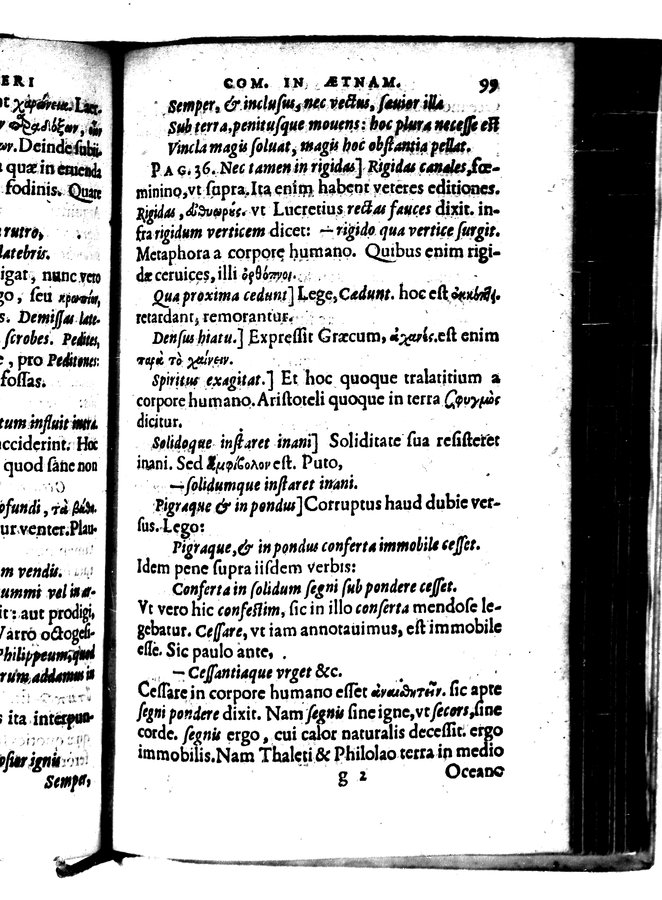 ERI
χαρώνεια. Lacr.
Deinde subii.
quæ in eruenda
fodinis. Quare
rutro,
latebris.
igat, nunc vero
go, seu
s. Demissas late-
scrobes. Pedites,
e, pro Peditones:
fossas.
tum influit intra.
acciderint. Hoc
quod sane non
ofundi, τὰ βάθη.
ur venter. Plau-
m vendis.
nummi vel in ar-
it: aut prodigi,
Varro octogesi-
Philippeum, quod
rum, addamus in
s ita interpun-
osier ignis
Semper,
COM. IN ÆTNAM. 99
Semper, & inclusus, nec vectus, sæuior illa
Sub terra, penitusque mouens: hoc plura necesse est
Vincla magis soluat, magis hoc obstantia pellat.
PAG. 36. Nec tamen in rigidas] Rigidas canales, fœ-
minino, vt supra. Ita enim habent veteres editiones.
Rigidas, εὐθυωρής. vt Lucretius rectas fauces dixit. in-
fra rigidum verticem dicet: — rigido qua vertice surgit.
Metaphora a corpore humano. Quibus enim rigi-
dæ ceruices, illi ὀρθόπνοι.
Qua proxima cedunt] Lege, Cadunt. hoc est
retardant, remorantur.
Densus hiatu.] Expressit Græcum, ἀχανές. est enim
παρὰ τὸ χαίνειν.
Spiritus exagitat.] Et hoc quoque tralatitium a
corpore humano. Aristoteli quoque in terra σφυγμὸς
dicitur.
Solidoque instaret inani] Soliditate sua resisteret
inani. Sed ἀμφίβολον est. Puto,
— solidumque instaret inani.
Pigraque & in pondus] Corruptus haud dubie ver-
sus. Lego:
Pigraque, & in pondus conferta immobile cesset.
Idem pene supra iisdem verbis:
Conferta in solidum segni sub pondere cesset.
Vt vero hic confestim, sic in illo conserta mendose le-
gebatur. Cessare, vt iam annotauimus, est immobile
esse. Sic paulo ante,
— Cessantiaque vrget &c.
Cessare in corpore humano esset ἀναισθητεῖν. sic apte
segni pondere dixit. Nam segnis sine igne, vt secors, sine
corde. segnis ergo, cui calor naturalis decessit. ergo
immobilis. Nam Thaleti & Philolao terra in medio
g 2 Oceano